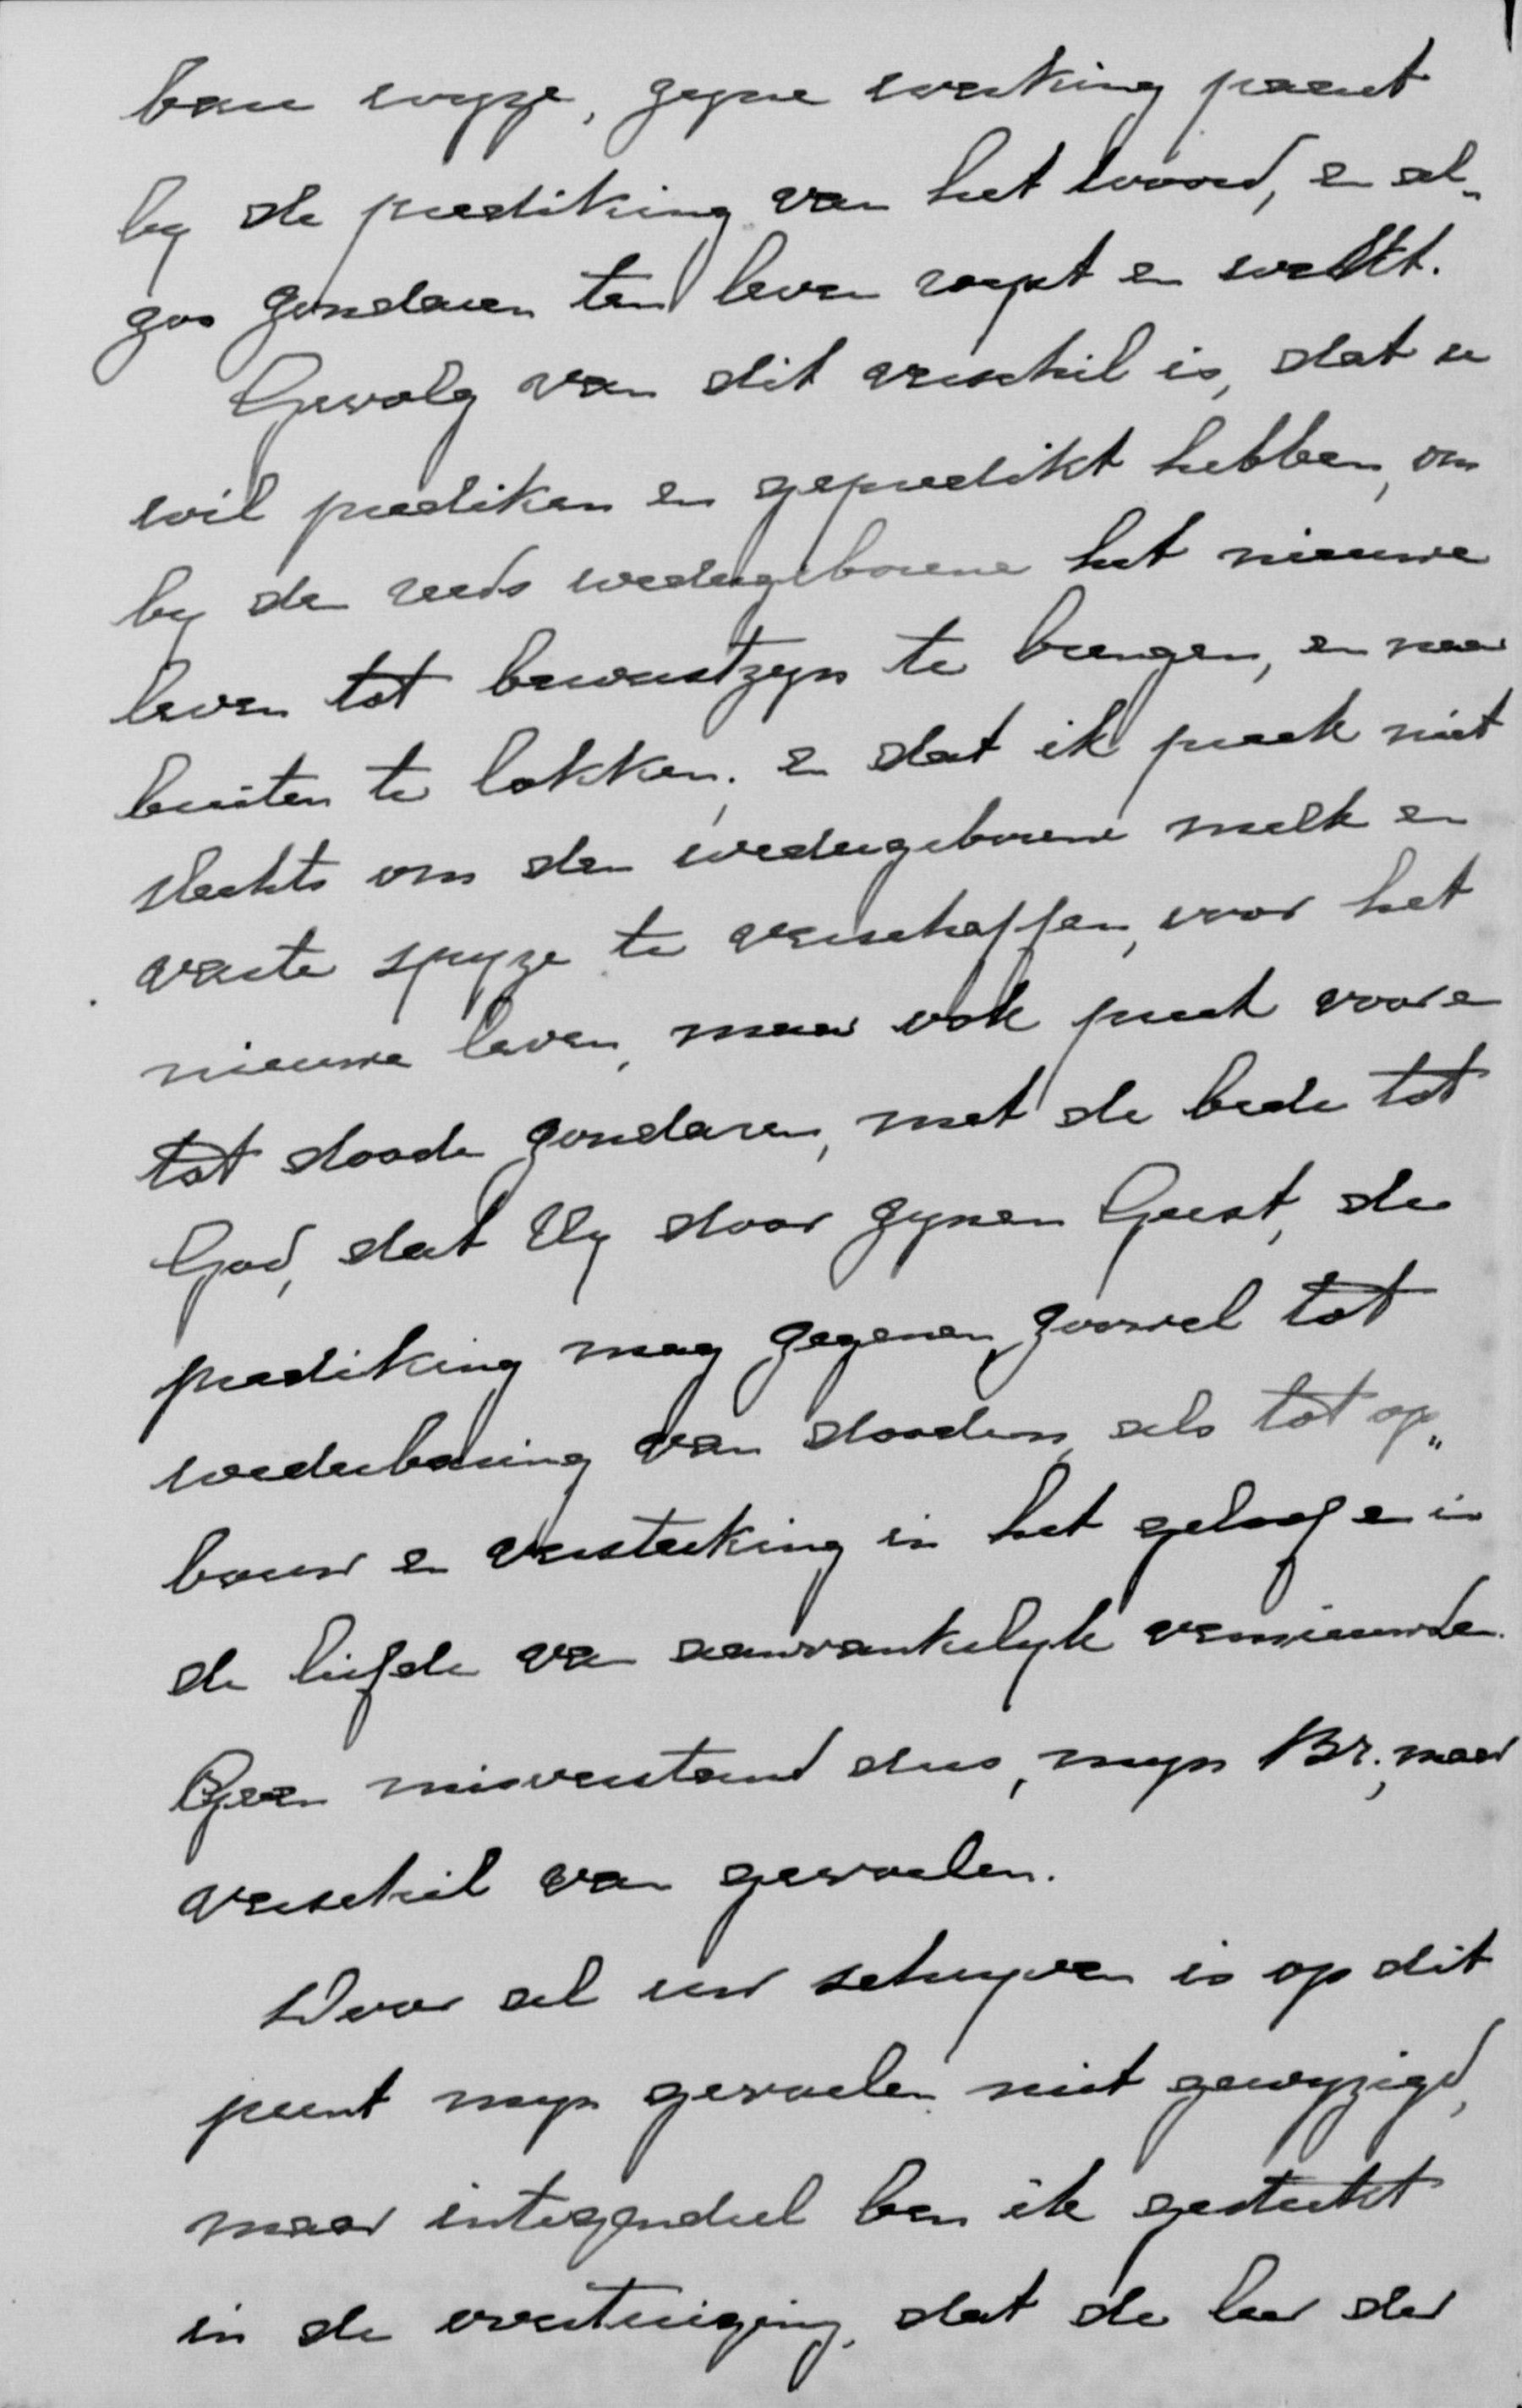 bare wyze, zyne werking paart
by de prediking van het woord, en al„
zoo zondaren ten leven roept en wekt.
Gevolg van dit verschil is, dat u
wil prediken en gepredikt hebben, om
by den reeds wedergeborene het nieuwe
leven tot bewustzyn te brengen, en naar
buiten te lokken; en dat ik preek niet
slechts om den wedergeborene melk en
vaste spyze te verschaffen, voor het
nieuwe leven, maar ook preek voor en
tot doode zondaren, met de bede tot
God, dat Hy door zynen Geest, die
prediking mag zegenen, zoowel tot
wederbaring van dooden, als tot op„
bouw en versterking in het geloof en in
de liefde van aanvankelyk vernieuwde.
Geen misverstand dus, myn Br.; maar
verschil van gevoelen.
Door al uw schryven is op dit
punt myn gevoelen niet gewyzigd,
maar integendeel ben ik gesterkt
in de overtuiging, dat de leer der